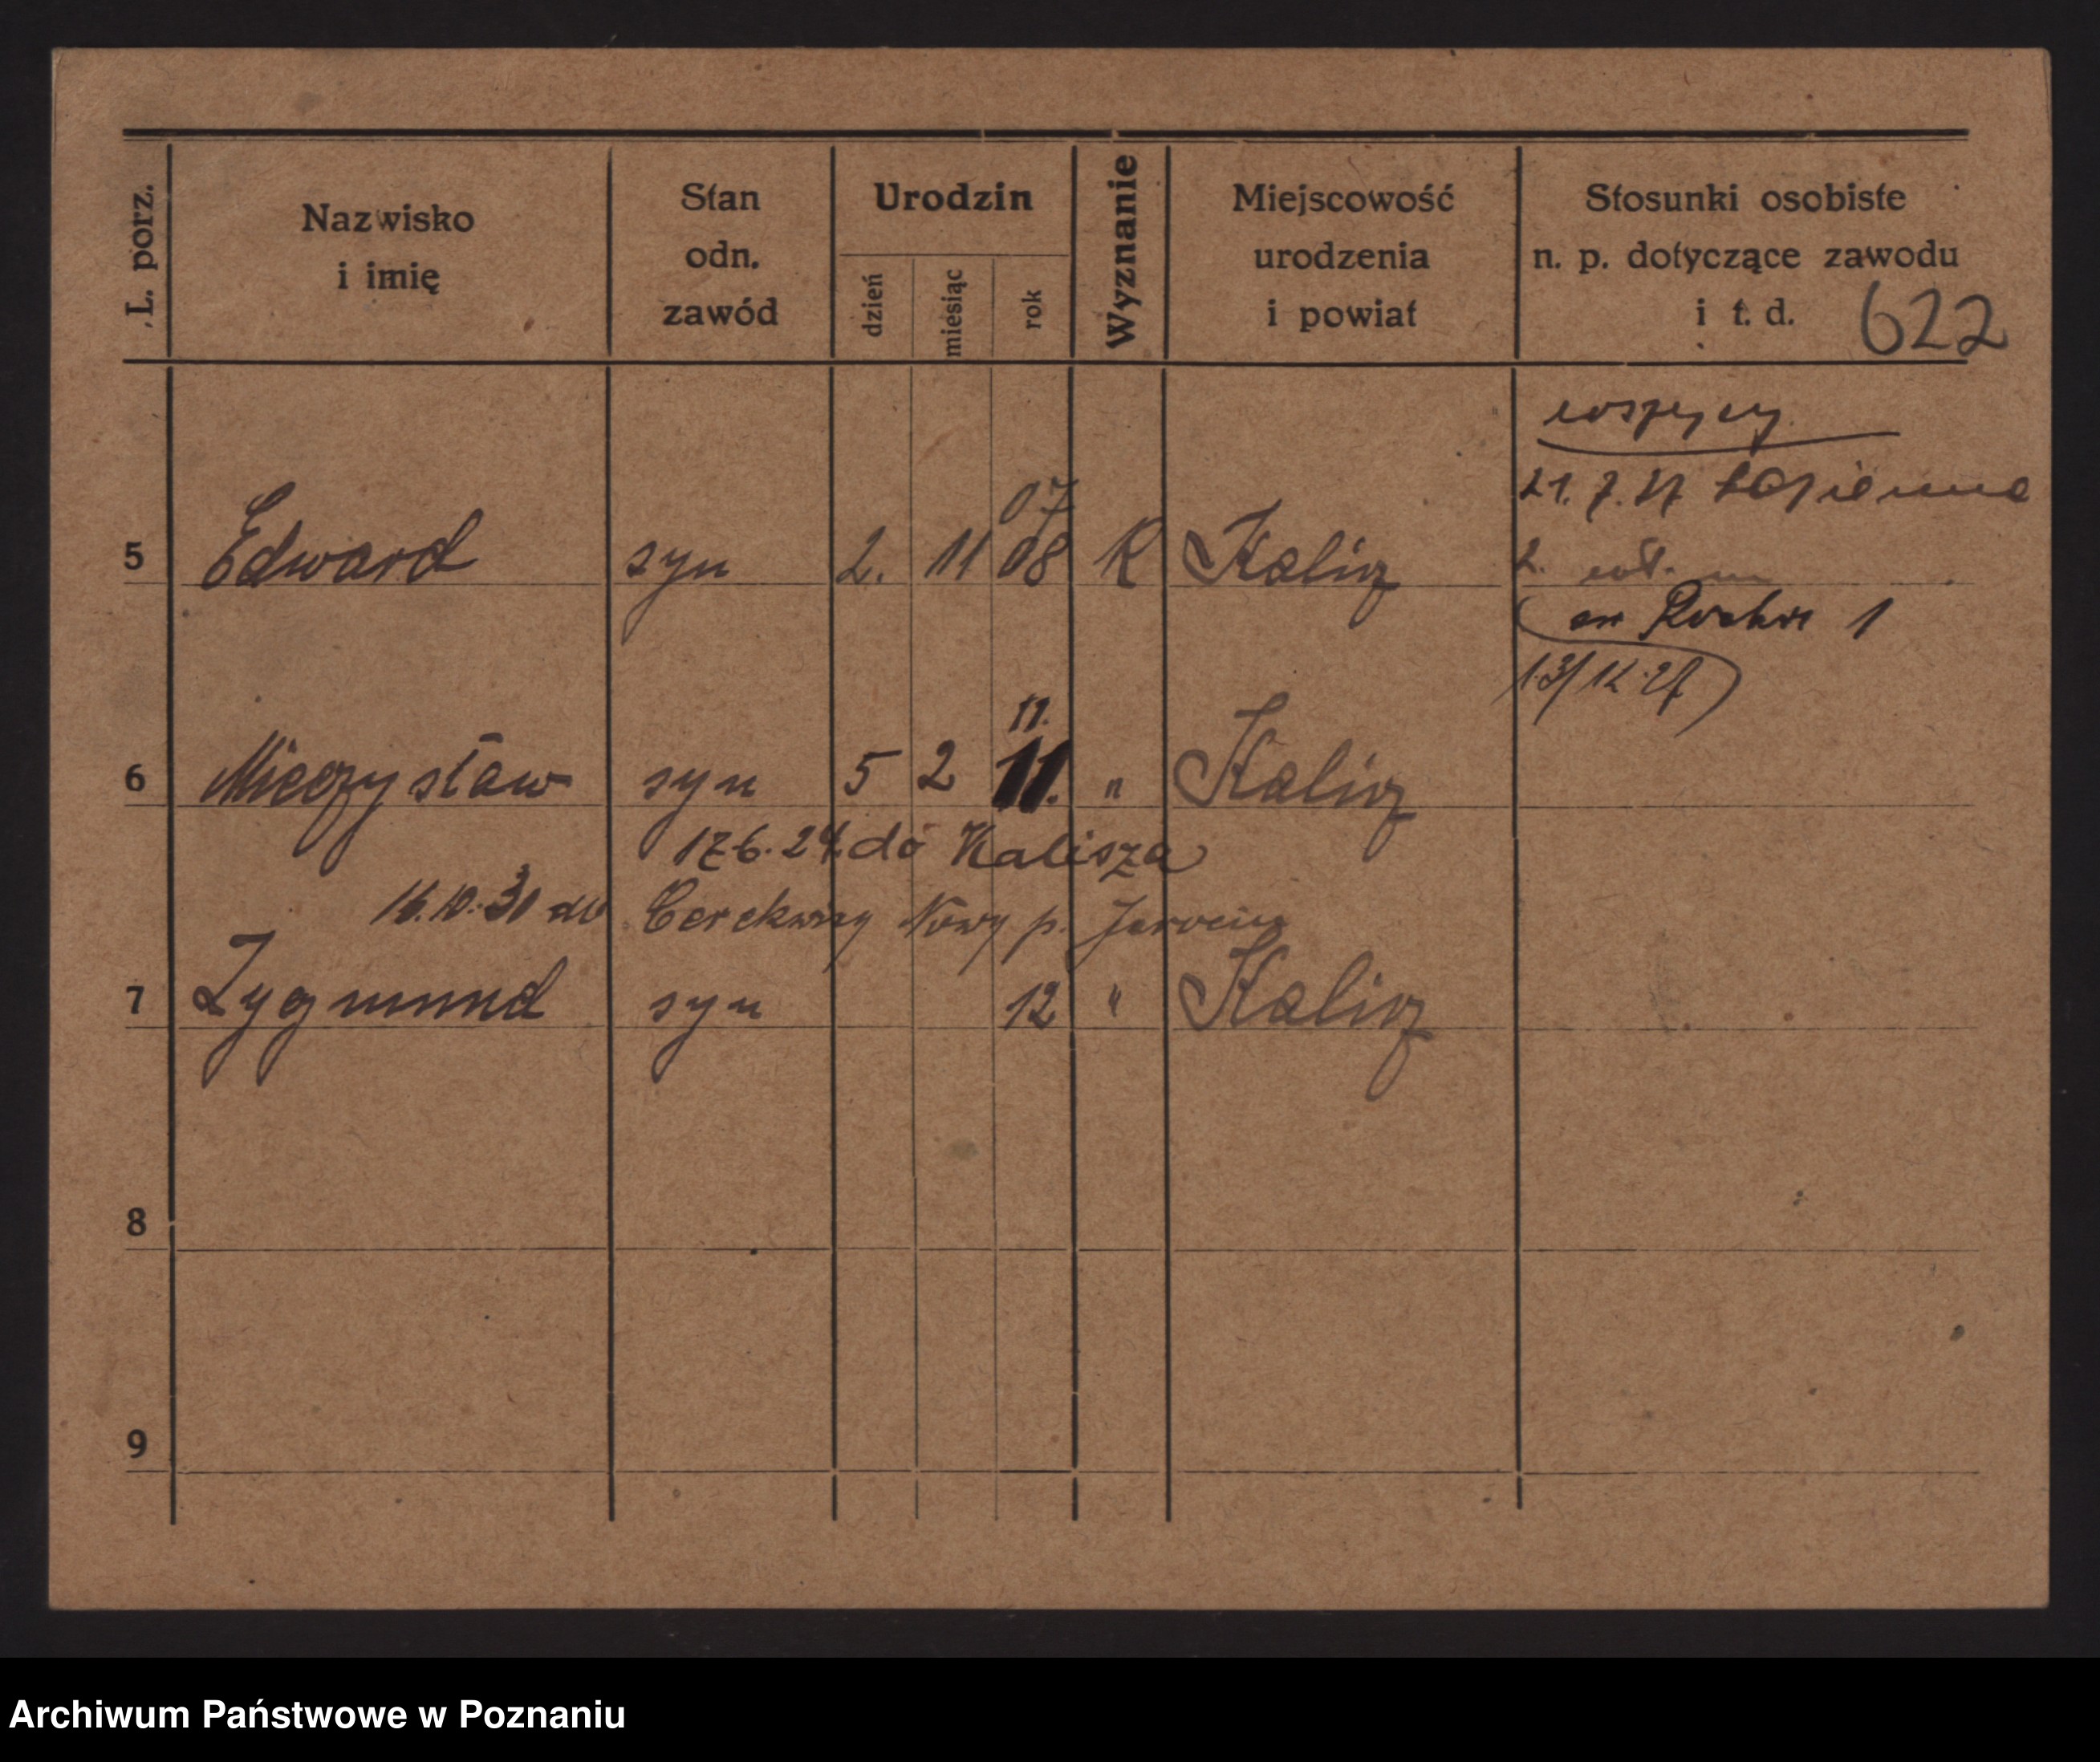 L. porz.
Nazwisko
i imię
Stan
odn.
zawód
Urodzin
dzień
miesiąc
rok
Wyznanie
Miejscowość
urodzenia
i powiat
Stosunki osobiste
n. p. dotyczące zawodu
i t. d.
622
wszyscy
21. 7. 27
07
5 Edward syn 2. 11 08 K Kalisz
1
11.
6 Mieczysław syn 5 2 11. " Kalisz
17.6.24. do Kalisza
16.10.30 do Cerekwicy Nowy p. Jarocin
7 Zygmund syn 12 " Kalisz
8
9
Archiwum Państwowe w Poznaniu